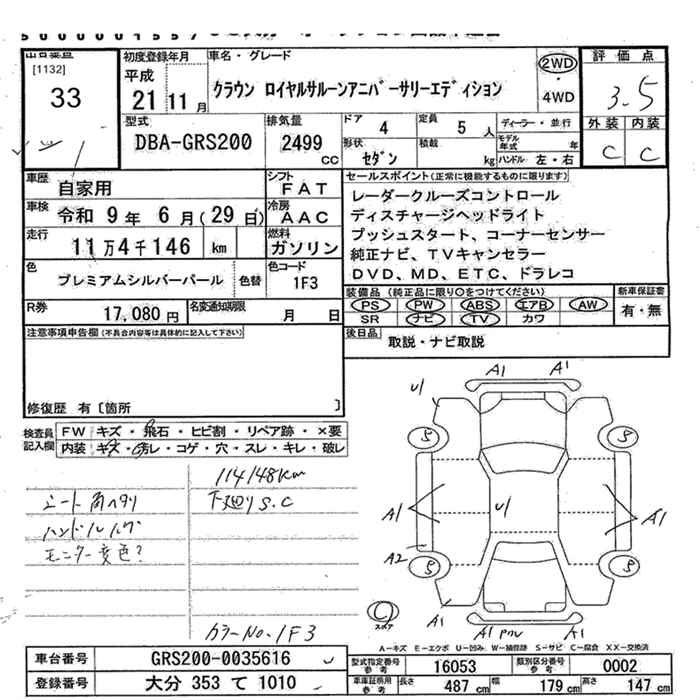 出品番号
[1132]
33
初度登録年月
平成
21 11 月
車名・グレード
クラウン ロイヤルサルーンアニバーサリーエディション
2WD
・
4WD
評価点
3.5
外装 内装
C C
型式
DBA-GRS200
排気量
2499
cc
ドア 4
定員 5 人
ディーラー・並行
形状 セダン
積載 kg
モデル年式 年
ハンドル 左・右
車歴
自家用
シフト
FAT
車検
令和 9 年 6 月(29 日)
冷房
AAC
走行
11 万 4 千 146 km
燃料
ガソリン
色
プレミアムシルバーパール
色替
色コード
1F3
セールスポイント(正常に機能するものに限ります)
レーダークルーズコントロール
ディスチャージヘッドライト
プッシュスタート、コーナーセンサー
純正ナビ、TVキャンセラー
DVD、MD、ETC、ドラレコ
R券
17,080 円
名変通知期限
月 日
装備品(純正品に限り○をつけてください)
PS PW ABS エアB AW
SR ナビ TV カワ
新車保証書
有・無
注意事項申告欄(不具合内容等は具体的に記入して下さい)
後日品
取説・ナビ取説
修復歴 有〔箇所 〕
検査員記入欄
FW キズ・飛石・ヒビ割・リペア跡・×要
内装 キズ・汚レ・コゲ・穴・スレ・キレ・破レ
114148km
シート角ヘタリ
下廻りS.C
ハンドルハゲ
モニター変色?
カラーNo.1F3
A1 A1
U1
S S
A1 U1 A1
A2
S S
A1 A1 A1
スペア
A-キズ E-エクボ U-凹み W-補修跡 S-サビ C-腐食 XX-交換済
車台番号
GRS200-0035616
登録番号
大分 353 て 1010
型式指定番号 参考
16053
類別区分番号 参考
0002
車庫証明用 参考
長さ 487 cm
幅 179 cm
高さ 147 cm